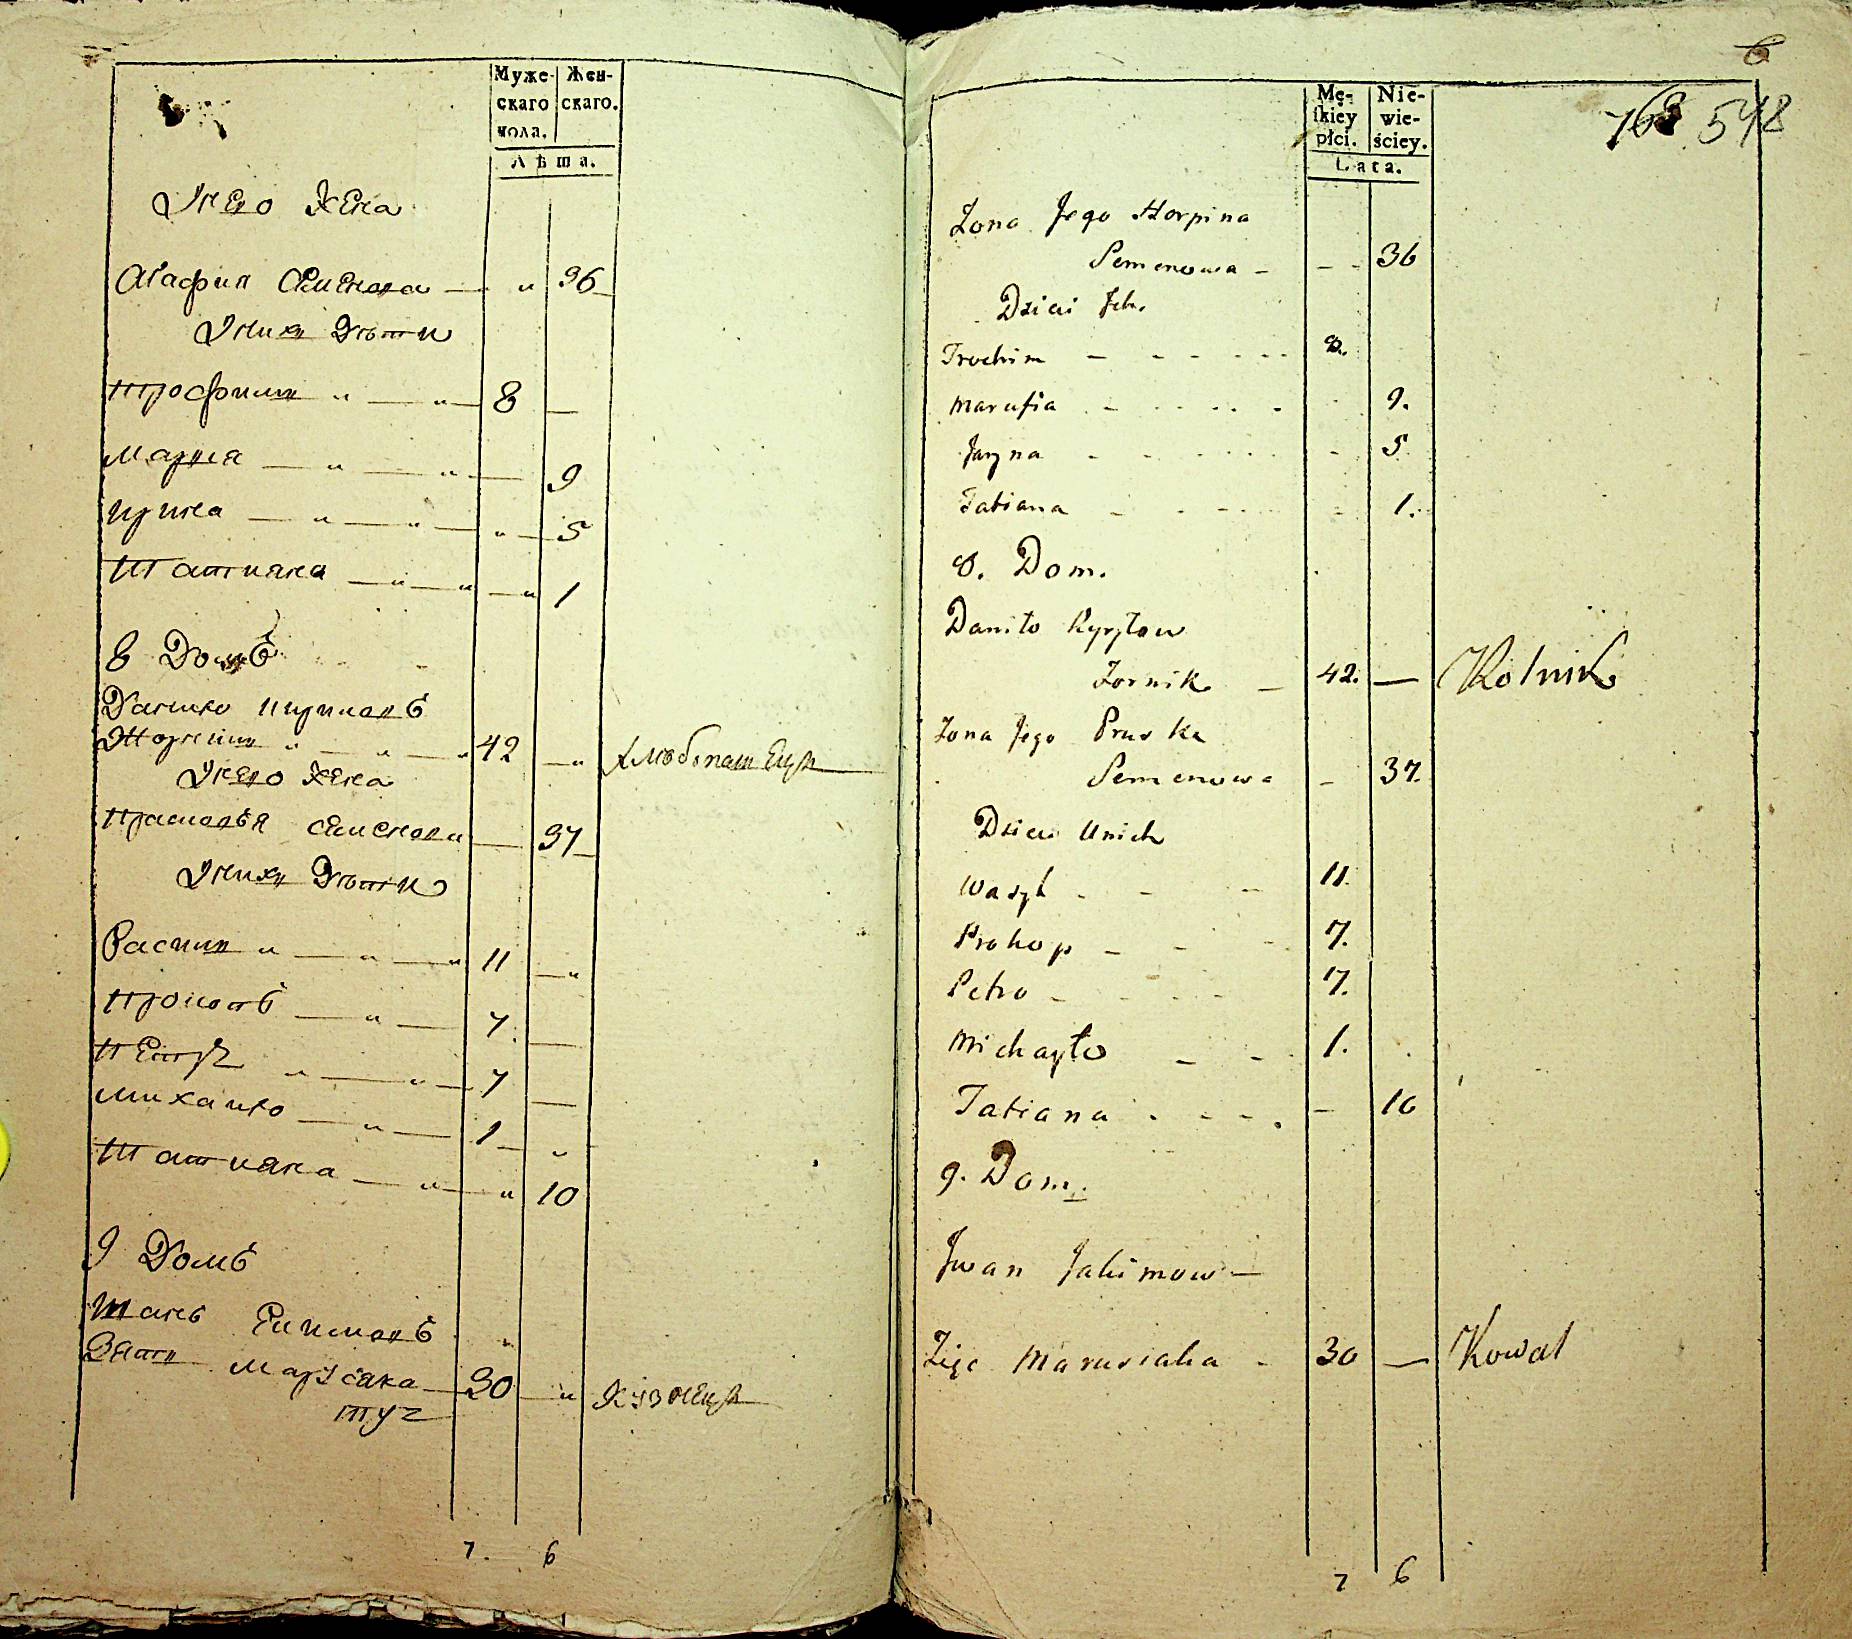 Муже-
скаго
пола.
Жен-
скаго.
Лѣта.
У него жена
Агафия Семенова — " 36
У них дѣти
Трофим " — " — 8 —
Марія — " — " — 9
Ирина — " — " — " — 5
Татияна — " — " — " 1
8 Домъ
Данило Кириловъ
Жорник " — " — " 42 — " Хлебопашецъ
У него жена
Прасковья Семенова — 37
У них дѣти
Васил " — " — " 11 — "
Прокопъ — " — 7 —
Петръ " — " — 7 —
Михайло — " — 1 — "
Татияна — " — " 10
9 Домъ
Иванъ Екимовъ
Зять Марусяка — 30 — " Кузнецъ
7. 6
6
548
Mę-
skiey
płci.
Nie-
wie-
ściey.
Lata.
Żona Jego Horpina
Semenowa - - - 36
Dzieci Ich.
Trochim - - - - - - 8.
Marusia - - - - - - 9.
Jaryna - - - - - - 5
Tatiana - - - - - 1.
8. Dom.
Daniło Kyryłow
Żornik - 42. — Rolnik
Żona Jego Pruska
Semenowa - 37.
Dzieci Unich
Wasyl - - - 11.
Prokop - - - 7.
Petro - - - - 7.
Michayło - - 1.
Tatiana - - - - - 10
9. Dom.
Iwan Jakimow —
Zięć Marusiaka - 30 — Kowal
7 6